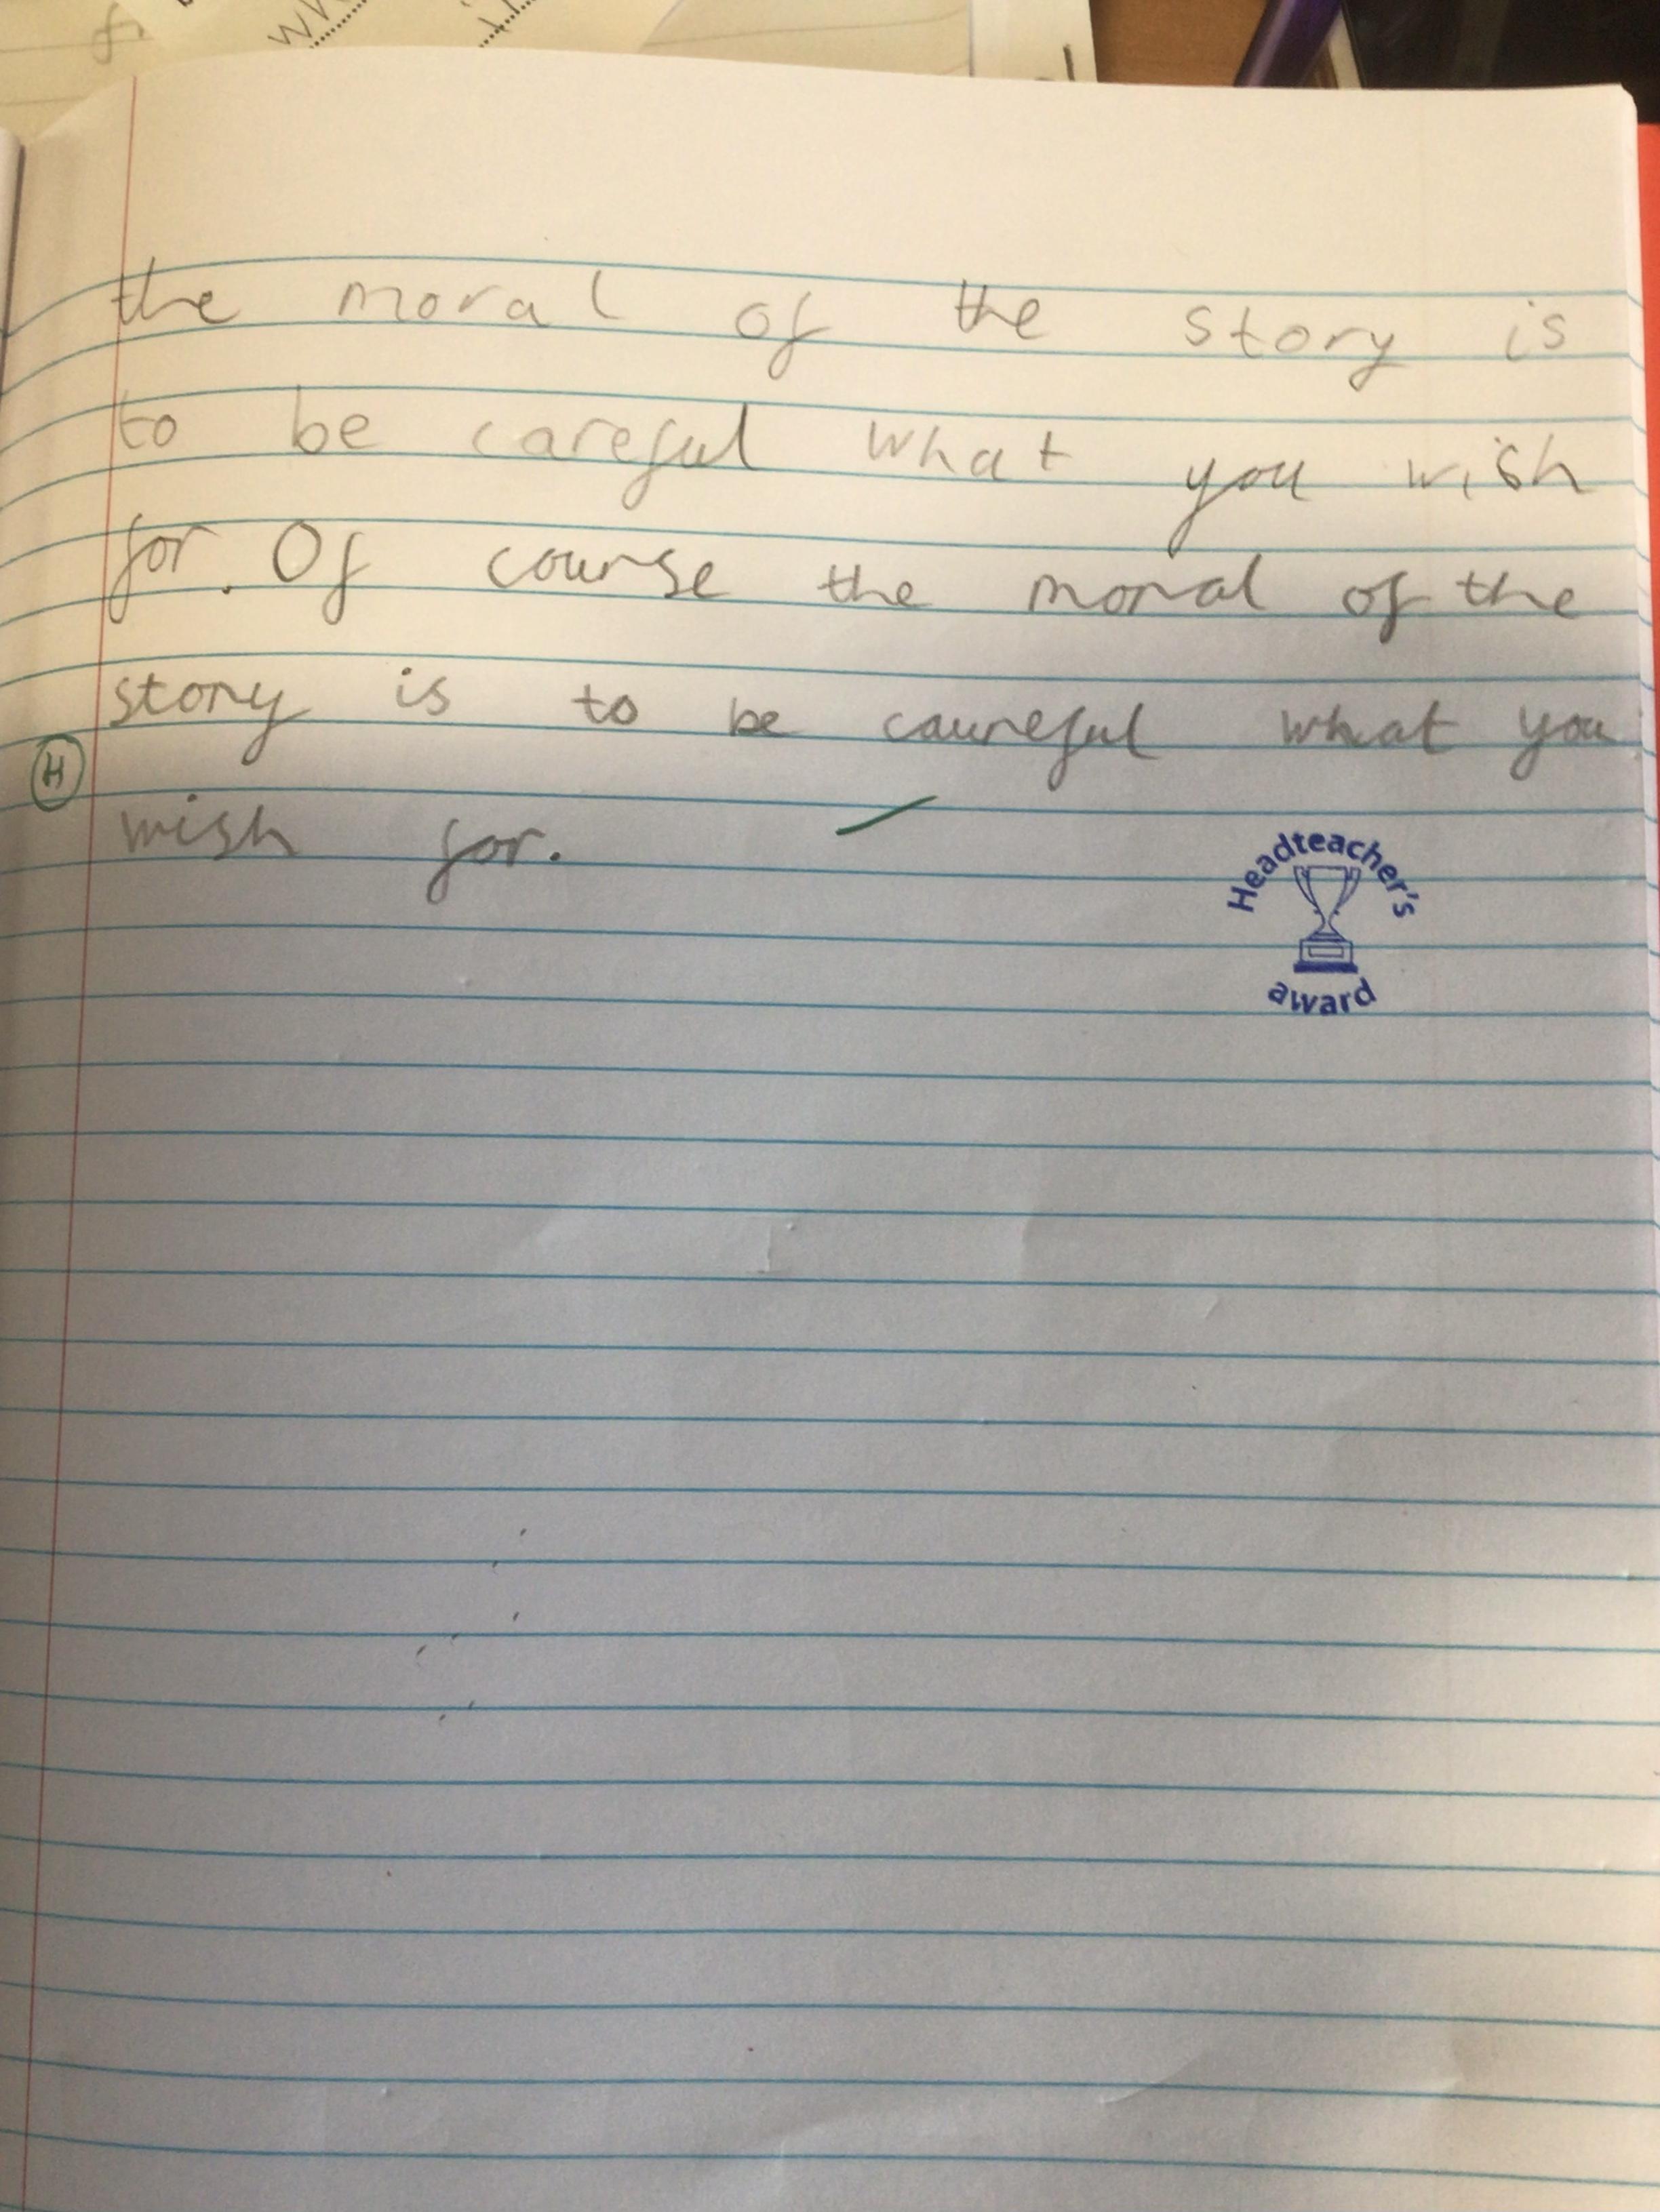 the moral of the story is
to be careful what you wish
for. Of course the moral of the
story is to be caureful what you
H
wish for.
Headteacher's
award